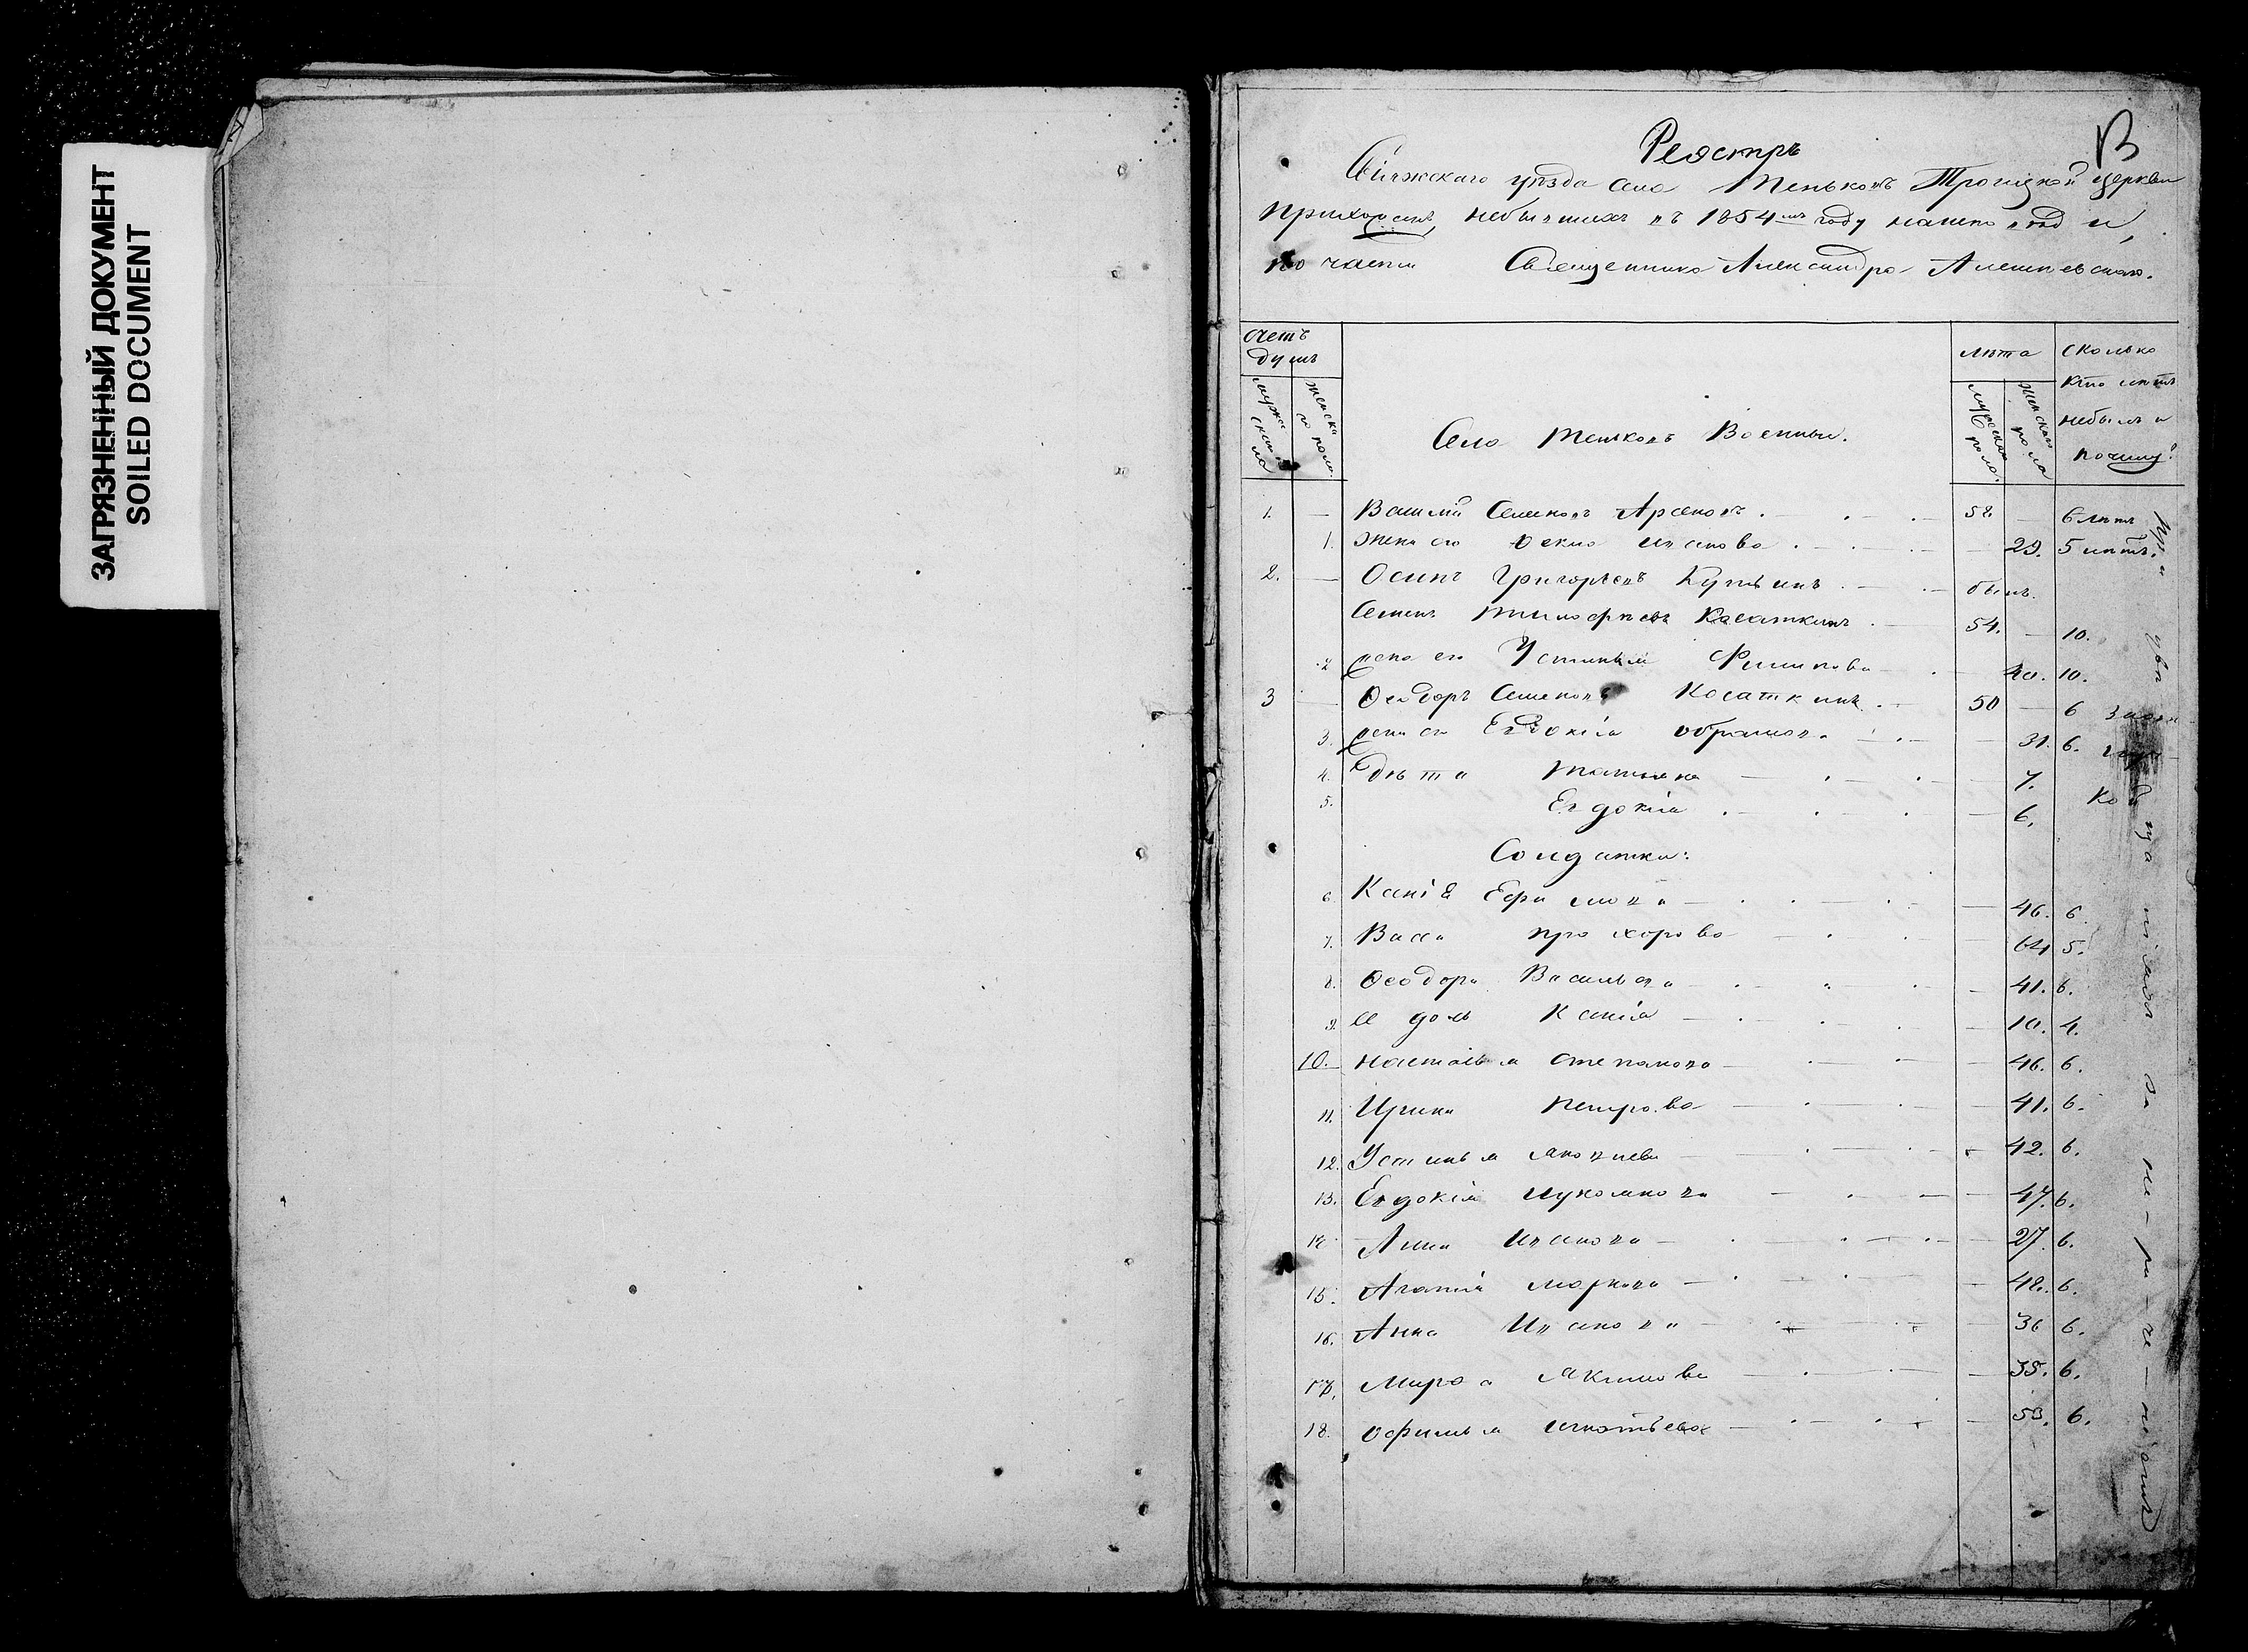 ЗАГРЯЗНЕННЫЙ ДОКУМЕНТ
SOILED DOCUMENT
В
Реэстръ
Свіяжскаго уѣзда села Теньковъ Троицкой церкви
прихожанъ, небывшихъ въ 1854мъ году на исповѣди,
по части Священника Александра
счетъ
душъ
лѣта
сколько
кто лѣтъ
небылъ и
почему?
мужескаго пола
женскаго пола
мужескаго пола
женскаго пола
Село Теньковъ Военные.
1. — Василій Семеновъ 58. — 6 лѣтъ
1. Жена его Ѳекла Иванова — 29. 5 лѣтъ.
2. — Осипъ Григорьевъ былъ.
Семенъ Тимофѣевъ Касаткинъ 54. — 10.
2 жена его Устинья Филипова 40. 10.
3 — Ѳеодоръ Семеновъ Косаткинъ 50 — 6
3. жена его Евдокія — 31. 6.
4. Дѣти Татьяна — 7.
5. Евдокія — 6.
Солдатки:
6. Ксенія Ефимова — 46. 6.
7. Васса Прохорова — 64 5.
8. Ѳеодора Васильева — 41. 6.
9. Ея дочь Ксенія — 10. 4.
10. Настасья Степанова — 46. 6.
11. Ирина Петрова — 41. 6.
12. Устинья Яковлева — 42. 6.
13. Евдокія — 47. 6.
14 Анна Иванова — 27. 6.
15. Агапія Маркова — 48. 6.
16. Анна Иванова — 36 6.
17. Марѳа Якимова — 35. 6.
18. Офимья Игнатьева — 53. 6.